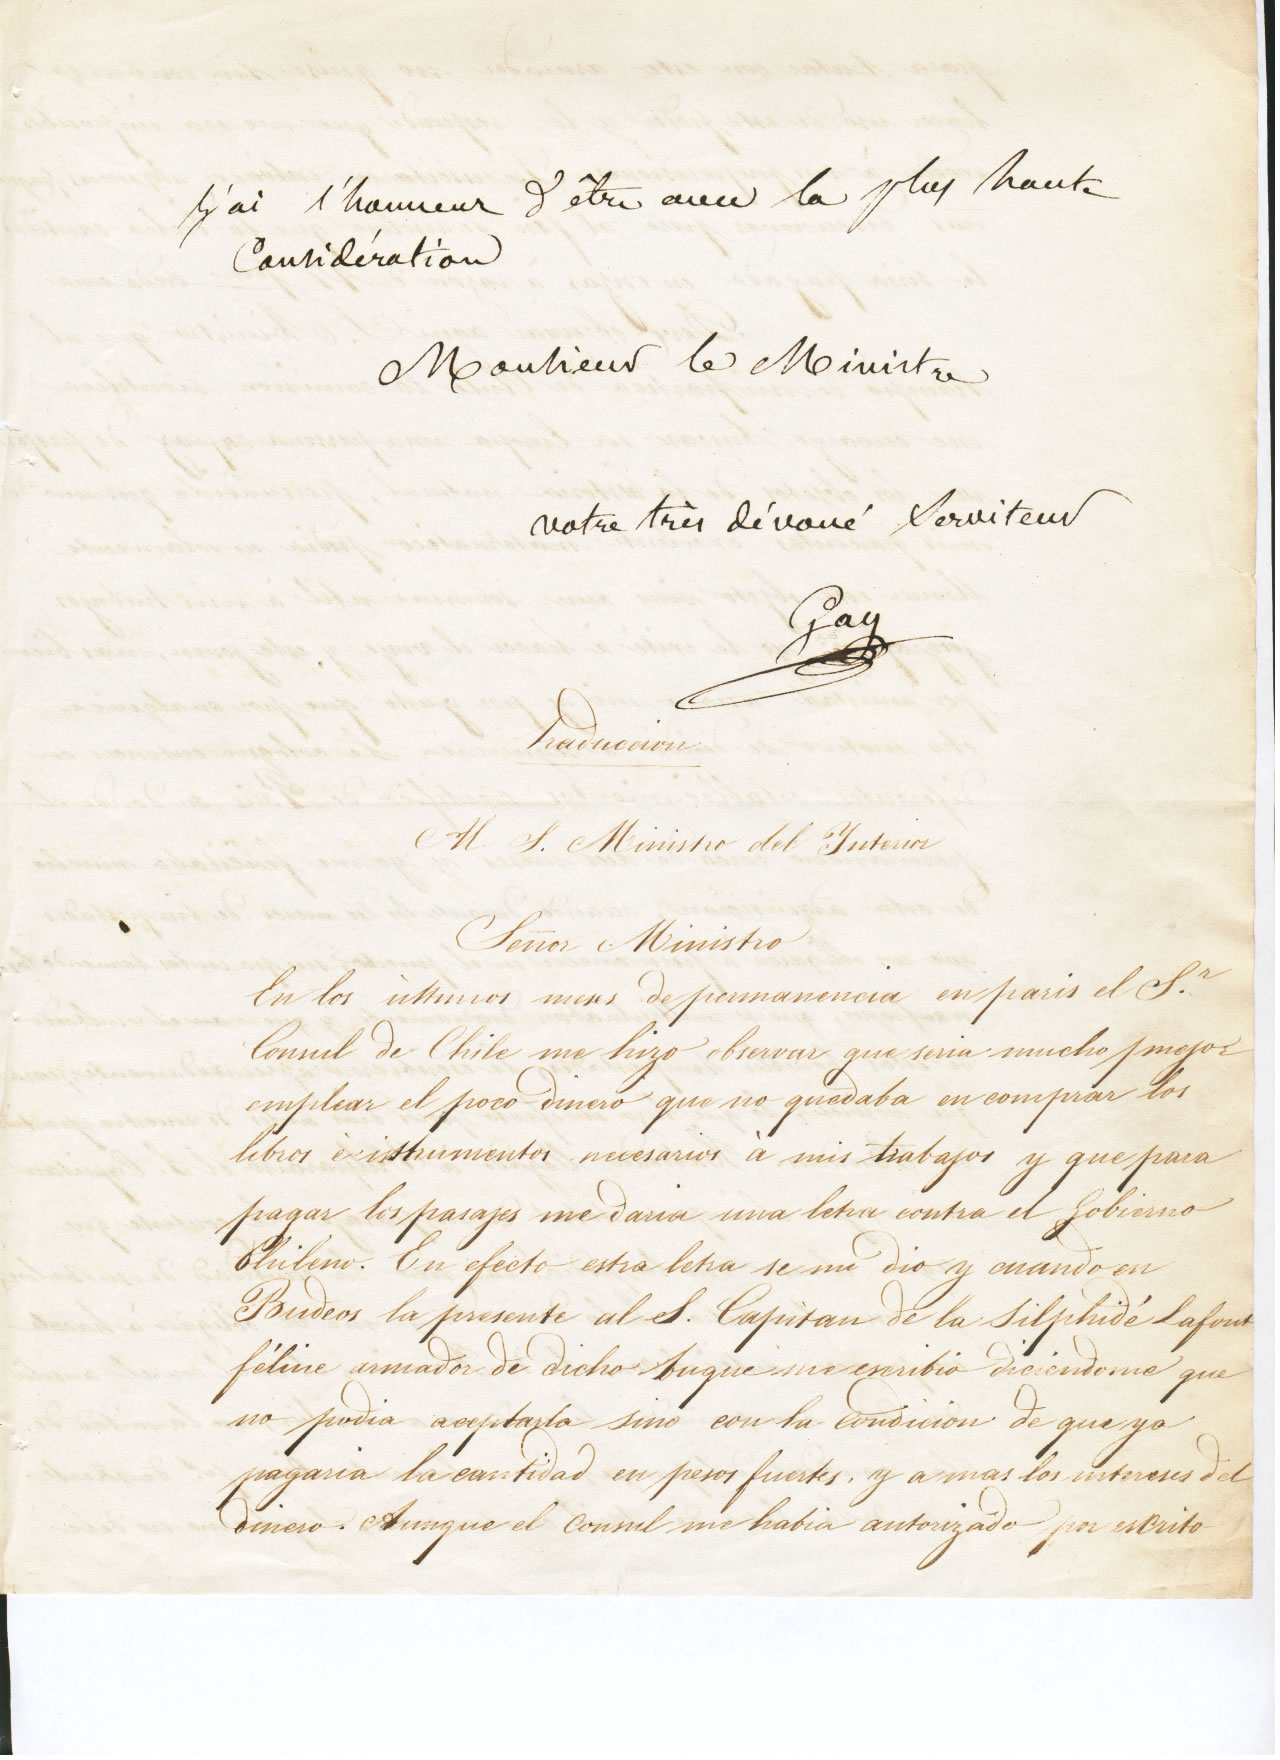 j'ai l'honneur d'être avec la plus haute
Considération
Monsieur le Ministre
votre très dévoué Serviteur
Gay
Traduccion
Al S. Ministro del Interior
Señor Ministro
En los ùltimos meses de permanencia en paris el S.r
Consul de Chile me hizo observar que seria mucho mejor
emplear el poco dinero que no quedaba en comprar los
libros è instrumentos necesarios à mis trabajos y que para
pagar los pasajes me daria una letra contra el Gobierno
Chileno. En efecto estra letra se me dio y cuando en
Budeos la presente al S. Capitan de la Silphidé Lafont
féline armador de dicho buque me escribio diciendome que
no podia aceptarla sino con la condicion de que yo
pagaria la cantidad en pesos fuertes, y a mas los intereses del
dinero. Aunque el Consul me habia autorizado por escrito